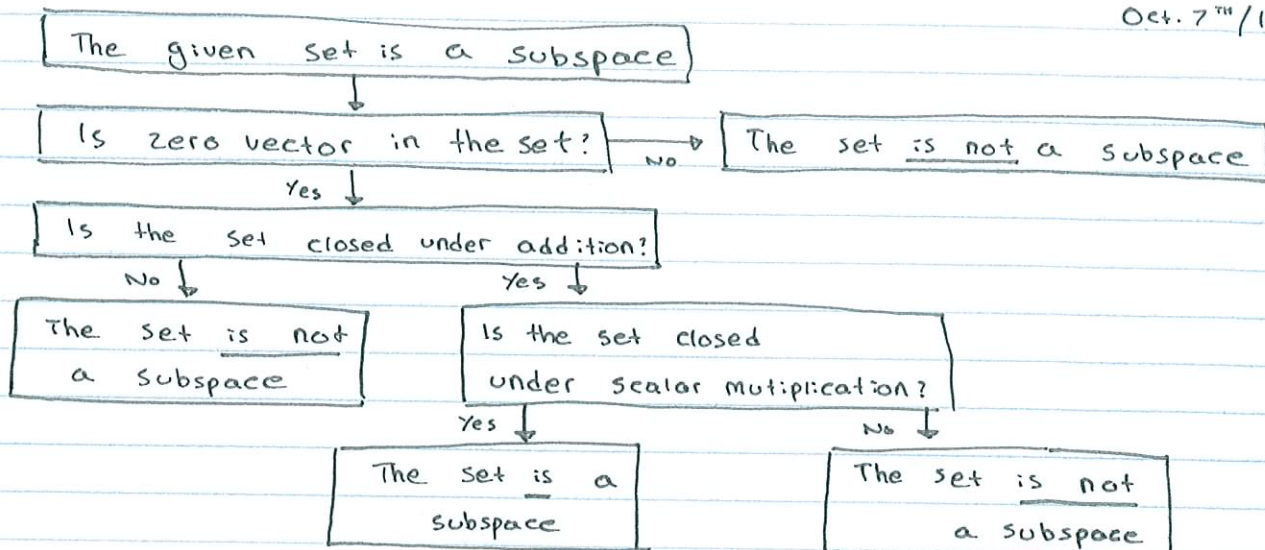 Oct. 7TH/1
The given set is a subspace
Is zero vector in the set?
No
The set is not a subspace
Yes
Is the set closed under addition?
No
Yes
The set is not
a subspace
Is the set closed
under scalar mutiplication?
Yes
No
The set is a
subspace
The set is not
a subspace